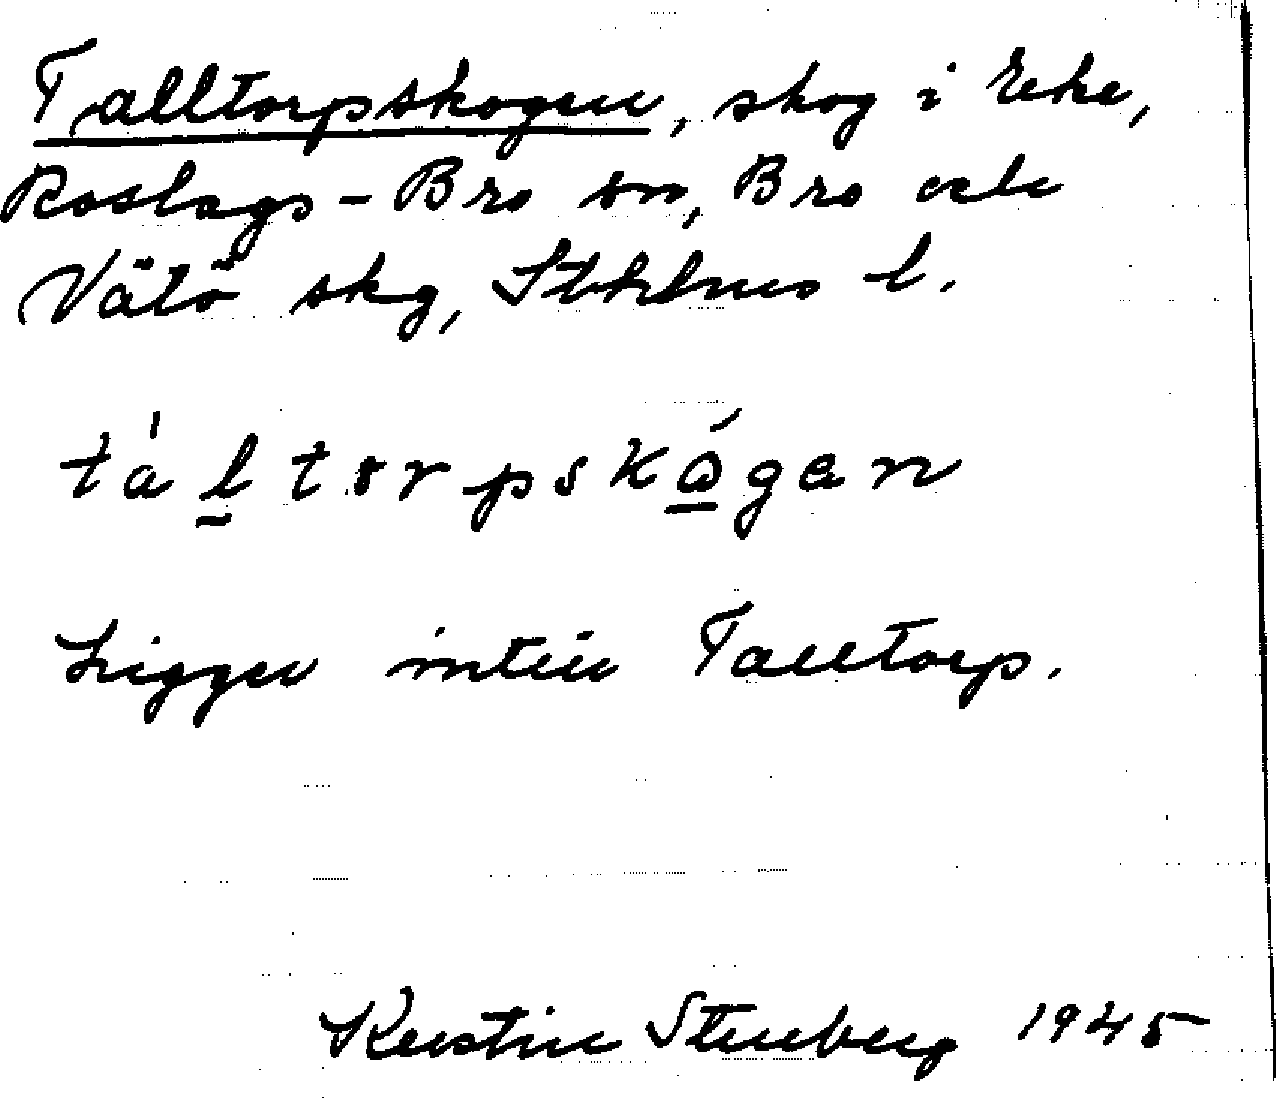 Talltorpskogen, skog i Eke,
Roslags-Bro sn, Bro och
Vätö skg, Sthlms l.
Ligger intill Talltorp.
Kerstin Stenberg 1945